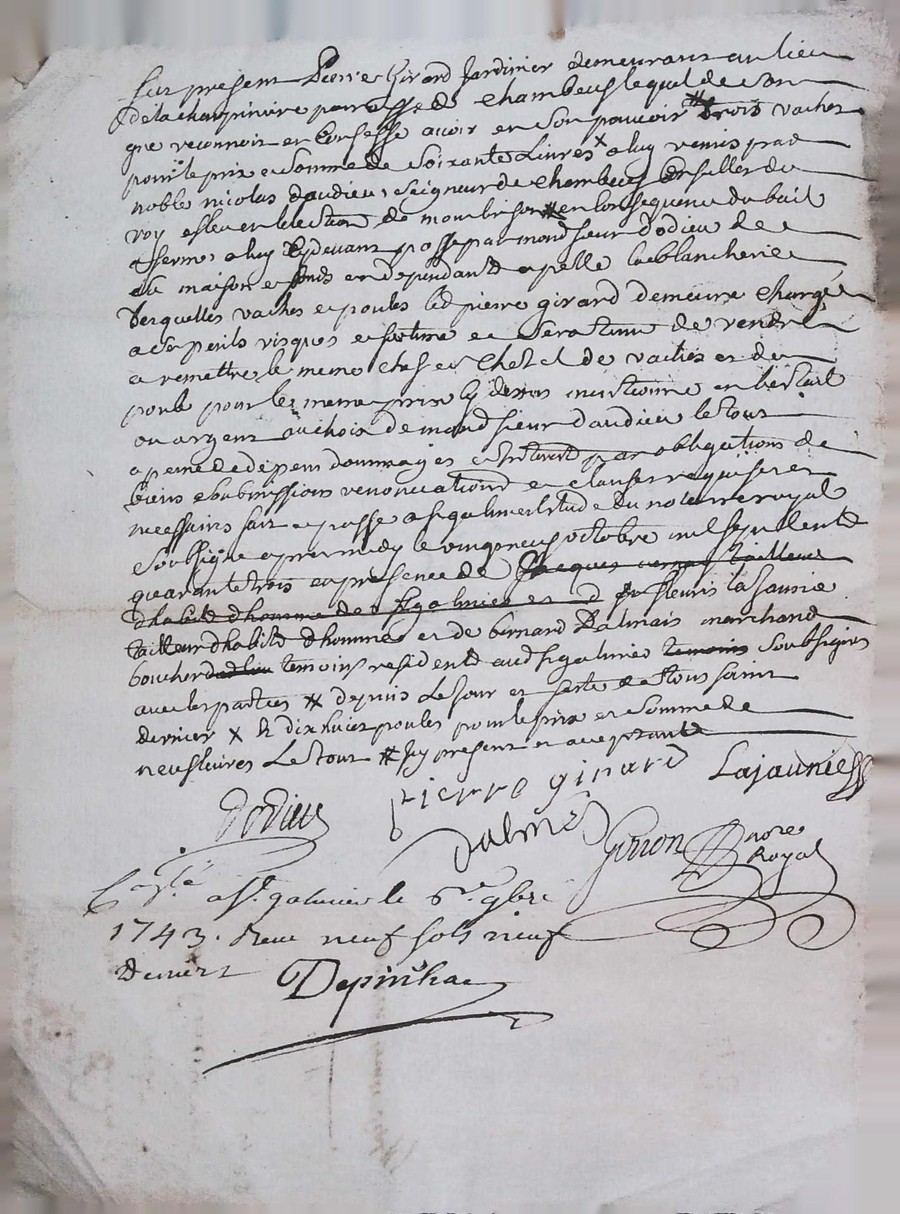 Fut present Pierre Girard Jardinier demeurant au lieu
de la charpiniere parroisse de Chambeuf lequel de son
gre reconnoit et Confesse avoir en son pouvoir # trois vaches
pour le prix et somme de soixante Livres x a luy remis par
noble nicolas daudieu seigneur de Chambeuf Conseiller du
roy esleu en lelection de montbrison # en Consequence du bail
a ferme a luy Cy devant passé par mond sieur dodieu de
maison et fonds en dependant apellé la blancherie
desquelles vaches et poules led pierre girard demeure chargé
a ses perils risques et fortune et sera tenu de rendre
et remettre le meme Chef et Chetel de vaches et de
poule pour le meme prix Cy dessus mentionné en bestail
ou argent au choix de mond sieur daudieu le tout
a peine de depens dommages et interest par obligations de
biens soubmissions renonciations et clauses requises et
necessaires fait et passé a st galmier Etude du notaire royal
soussigné apres midy le vingt neuf octobre mil sept cents
quarante trois en presence de Jacques tailleur
dhabits dhomme de st galmier et de Sr fleuris lajaunie
tailleur dhabits dhomme et de bernard Dalmais marchand
boucher temoins residents aud st galmier temoins soubsignés
avec les parties # depuis le jour et feste de tous saint
dernier x & dix huict poules pour le prix et somme de
neuf livres Le tout # Icy present et acceptant
pierre girard Lajaunie
Dodieu
Dalmés Girron nore
Royal
Conslé a st. galmier le 6.e 9bre
1743. Reçu neuf sols neuf
deniers Depinhac